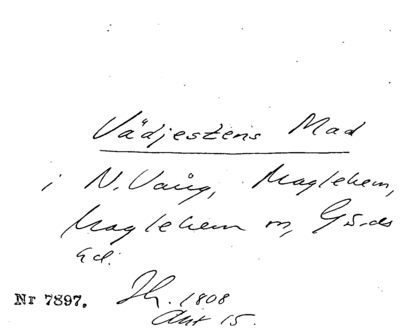 Vädjestens Mad
i N. Vång, Maglehem,
Maglehem sn, Gärds
hd.
Nr 7897. Jh. 1808
Akt 15.